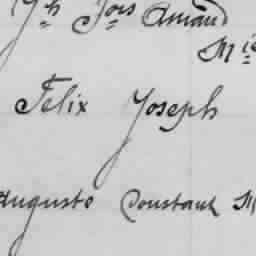 Jph Jors Amand
Mie
Felix Joseph
Auguste Constant M